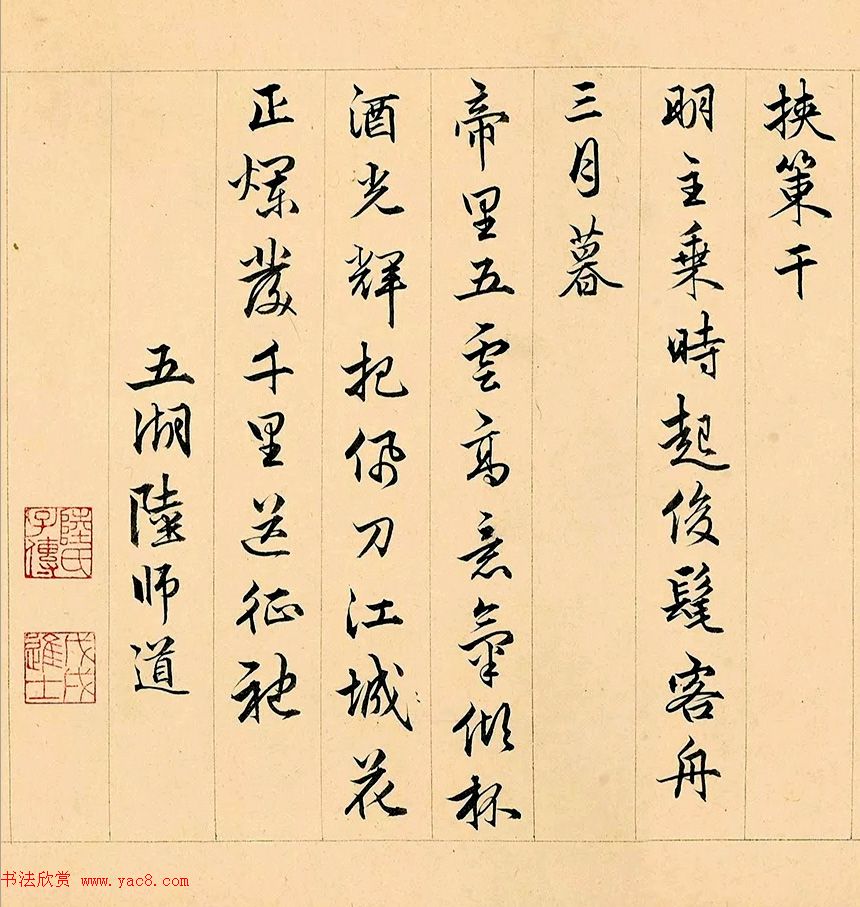 挾策干
明主乗時起俊髦客舟
三月暮
帝里五雲高意氣傾杯
酒光輝把佩刀江城花
正爛發千里送征袍
五湖陸師道
陸氏子傳
戊戌進士
书法欣赏 www.yac8.com